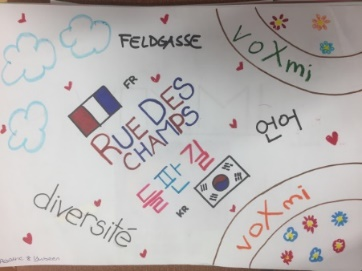 FELDGASSE
voXmi
FR
RUE DES
CHAMPS
언어
들판길
KR
diversité
voXmi